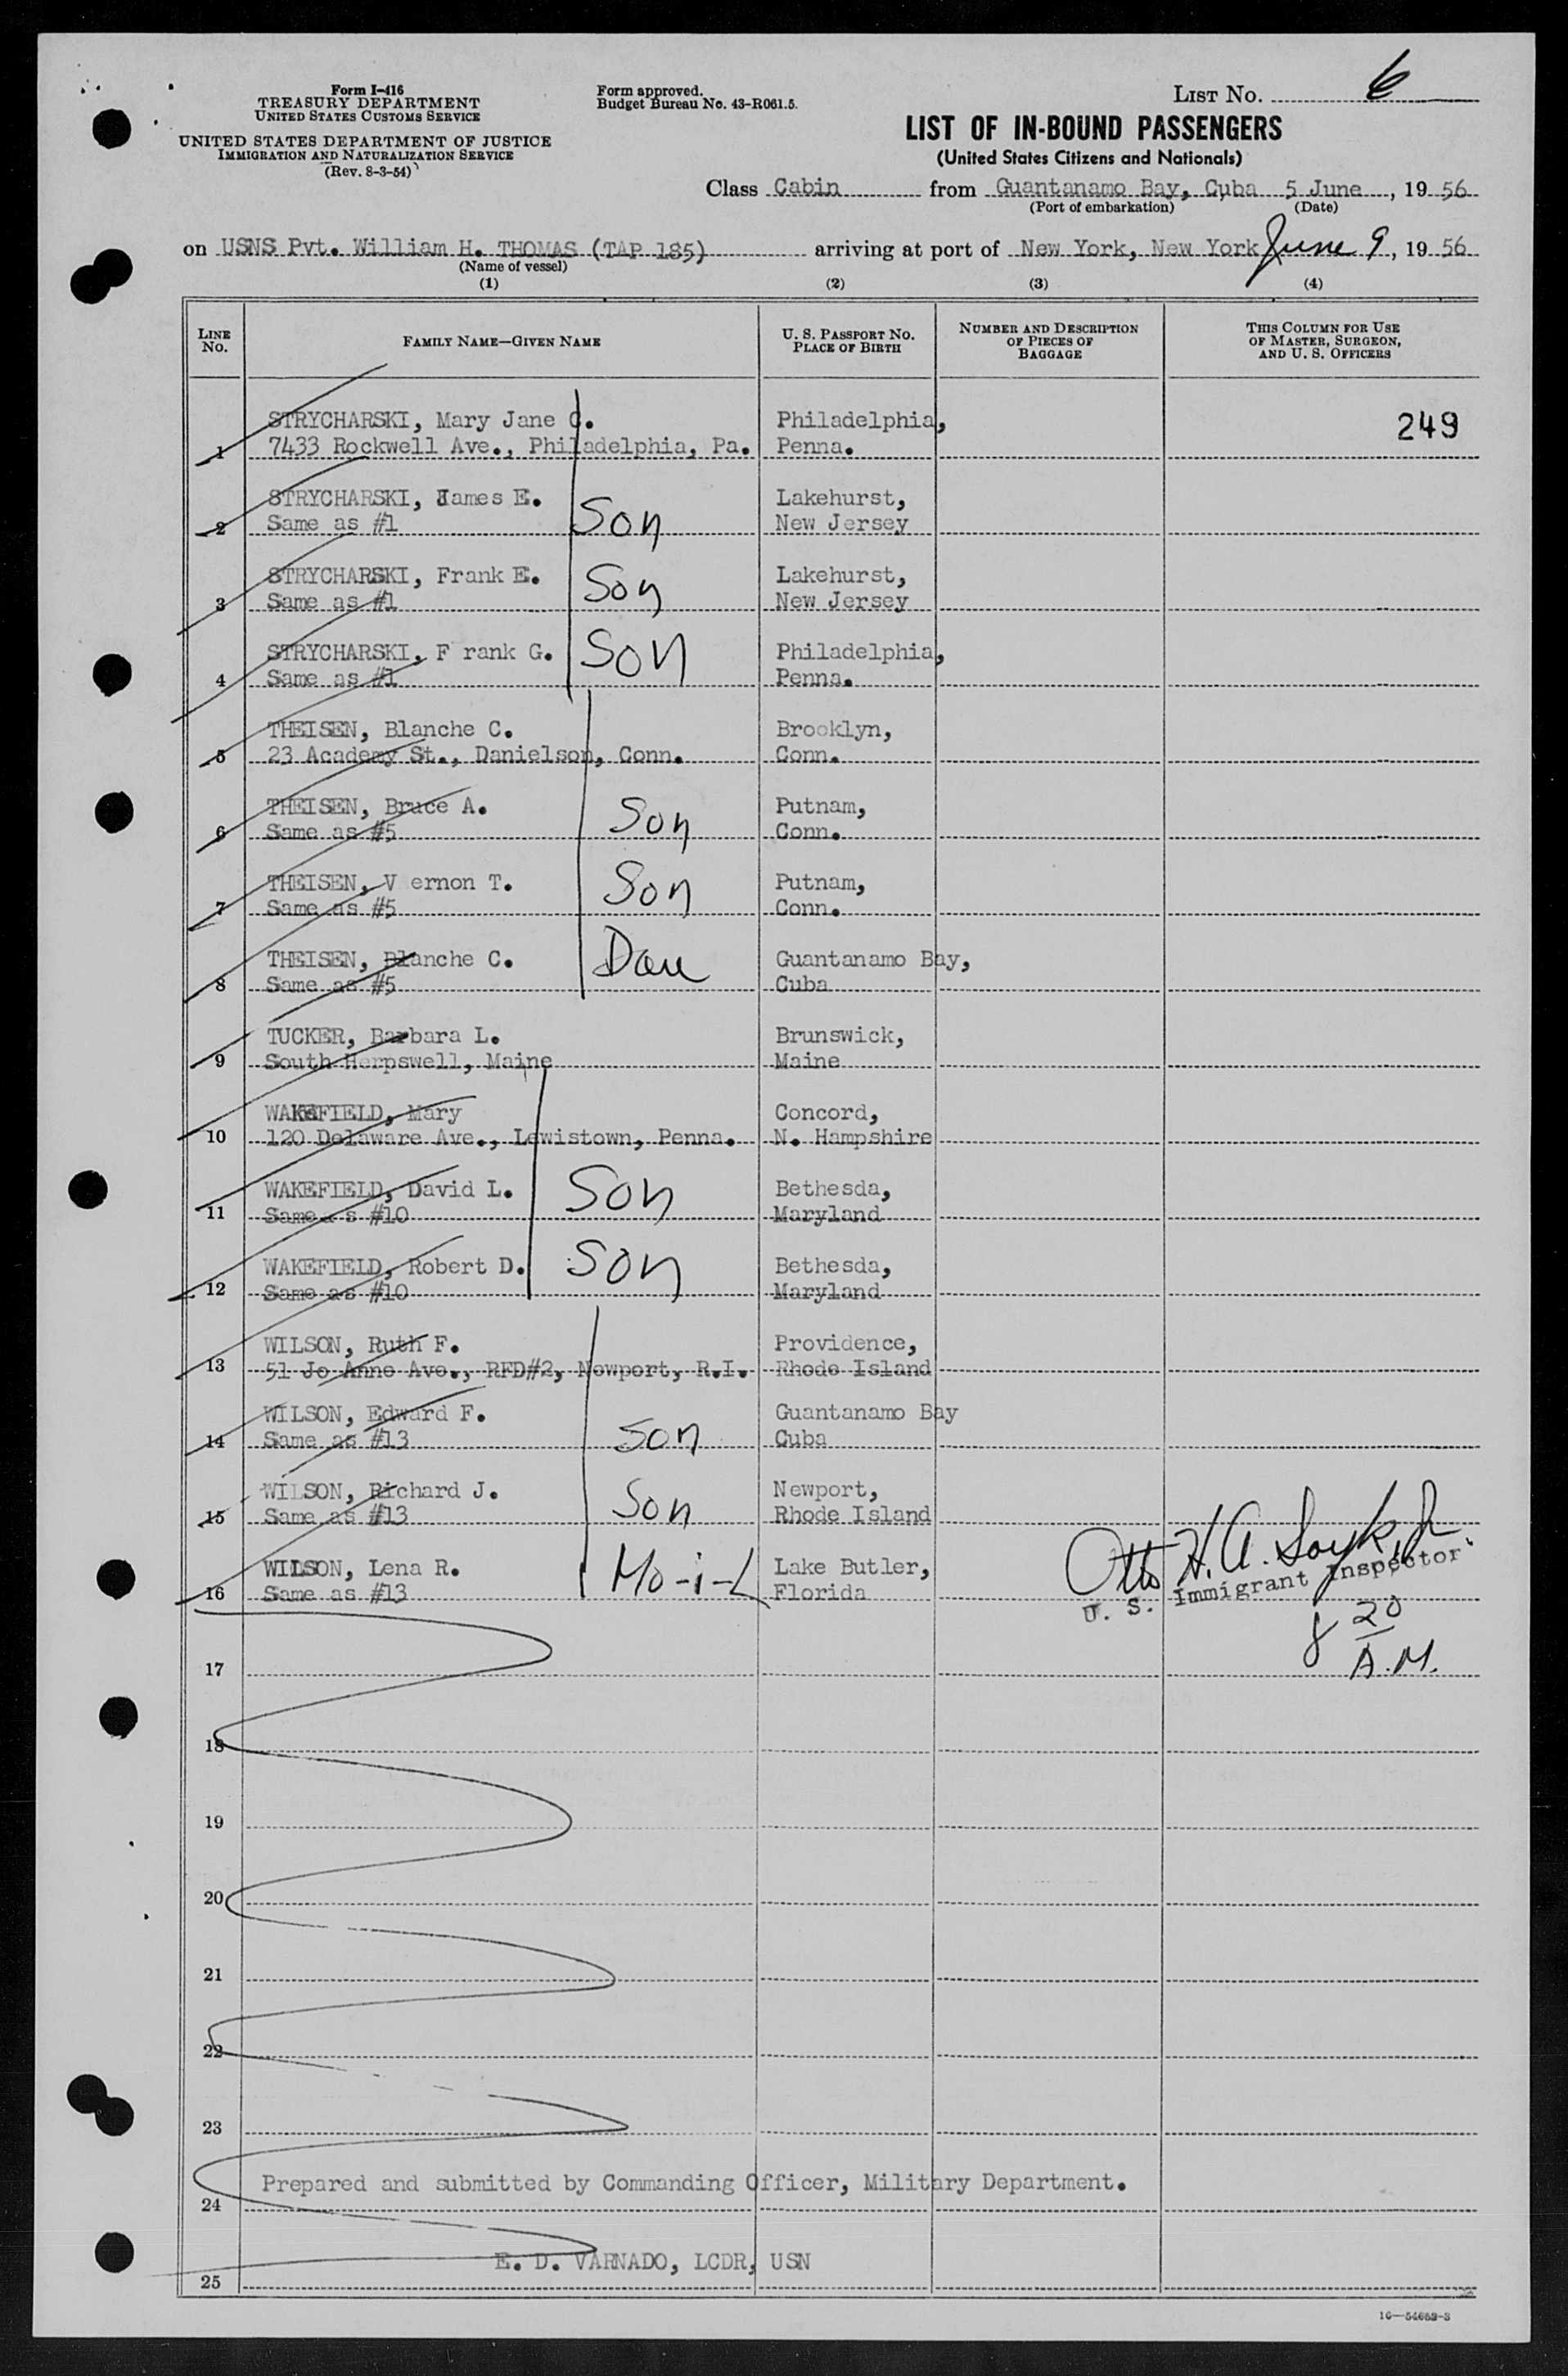 Form I-416
TREASURY DEPARTMENT
UNITED STATES CUSTOMS SERVICE
UNITED STATES DEPARTMENT OF JUSTICE
IMMIGRATION AND NATURALIZATION SERVICE
(Rev. 8-3-54)
Form approved.
Budget Bureau No. 43-R061.5.
LIST NO. 6
LIST OF IN-BOUND PASSENGERS
(United States Citizens and Nationals)
Class Cabin from Guantanamo Bay, Cuba 5 June, 19 56
(Port of embarkation) (Date)
on USNS Pvt. William H. THOMAS (TAP 185) arriving at port of New York, New York June 9, 19 56
(Name of vessel)
(1) (2) (3) (4)
LINE NO. FAMILY NAME—GIVEN NAME U. S. PASSPORT NO. PLACE OF BIRTH NUMBER AND DESCRIPTION OF PIECES OF BAGGAGE THIS COLUMN FOR USE OF MASTER, SURGEON, AND U. S. OFFICERS
STRYCHARSKI, Mary Jane C. Philadelphia, 249
1 7433 Rockwell Ave., Philadelphia, Pa. Penna.
STRYCHARSKI, James E. Lakehurst,
2 Same as #1 Son New Jersey
STRYCHARSKI, Frank E. Lakehurst,
3 Same as #1 Son New Jersey
STRYCHARSKI, F rank G. Son Philadelphia,
4 Same as #1 Penna.
THEISEN, Blanche C. Brooklyn,
5 23 Academy St., Danielson, Conn. Conn.
THEISEN, Bruce A. Putnam,
6 Same as #5 Son Conn.
THEISEN, V ernon T. Putnam,
7 Same as #5 Son Conn.
THEISEN, Blanche C. Dau Guantanamo Bay,
8 Same as #5 Cuba
TUCKER, Barbara L. Brunswick,
9 South Herpswell, Maine Maine
WAKEFIELD, Mary Concord,
10 120 Delaware Ave., Lewistown, Penna. N. Hampshire
WAKEFIELD, David L. Son Bethesda,
11 Same a s #10 Maryland
WAKEFIELD, Robert D. Son Bethesda,
12 Same as #10 Maryland
WILSON, Ruth F. Providence,
13 51 Jo Anne Ave., RFD#2, Newport, R.I. Rhode Island
WILSON, Edward F. Guantanamo Bay
14 Same as #13 Son Cuba
WILSON, Richard J. Newport,
15 Same as #13 Son Rhode Island
WILSON, Lena R. Mo-i-L Lake Butler,
16 Same as #13 Florida
Otto H. A.
U. S. Immigrant Inspector
8 20
A.M.
17
18
19
20
21
22
23
Prepared and submitted by Commanding Officer, Military Department.
24
E. D. VARNADO, LCDR, USN
25
16—54652-3